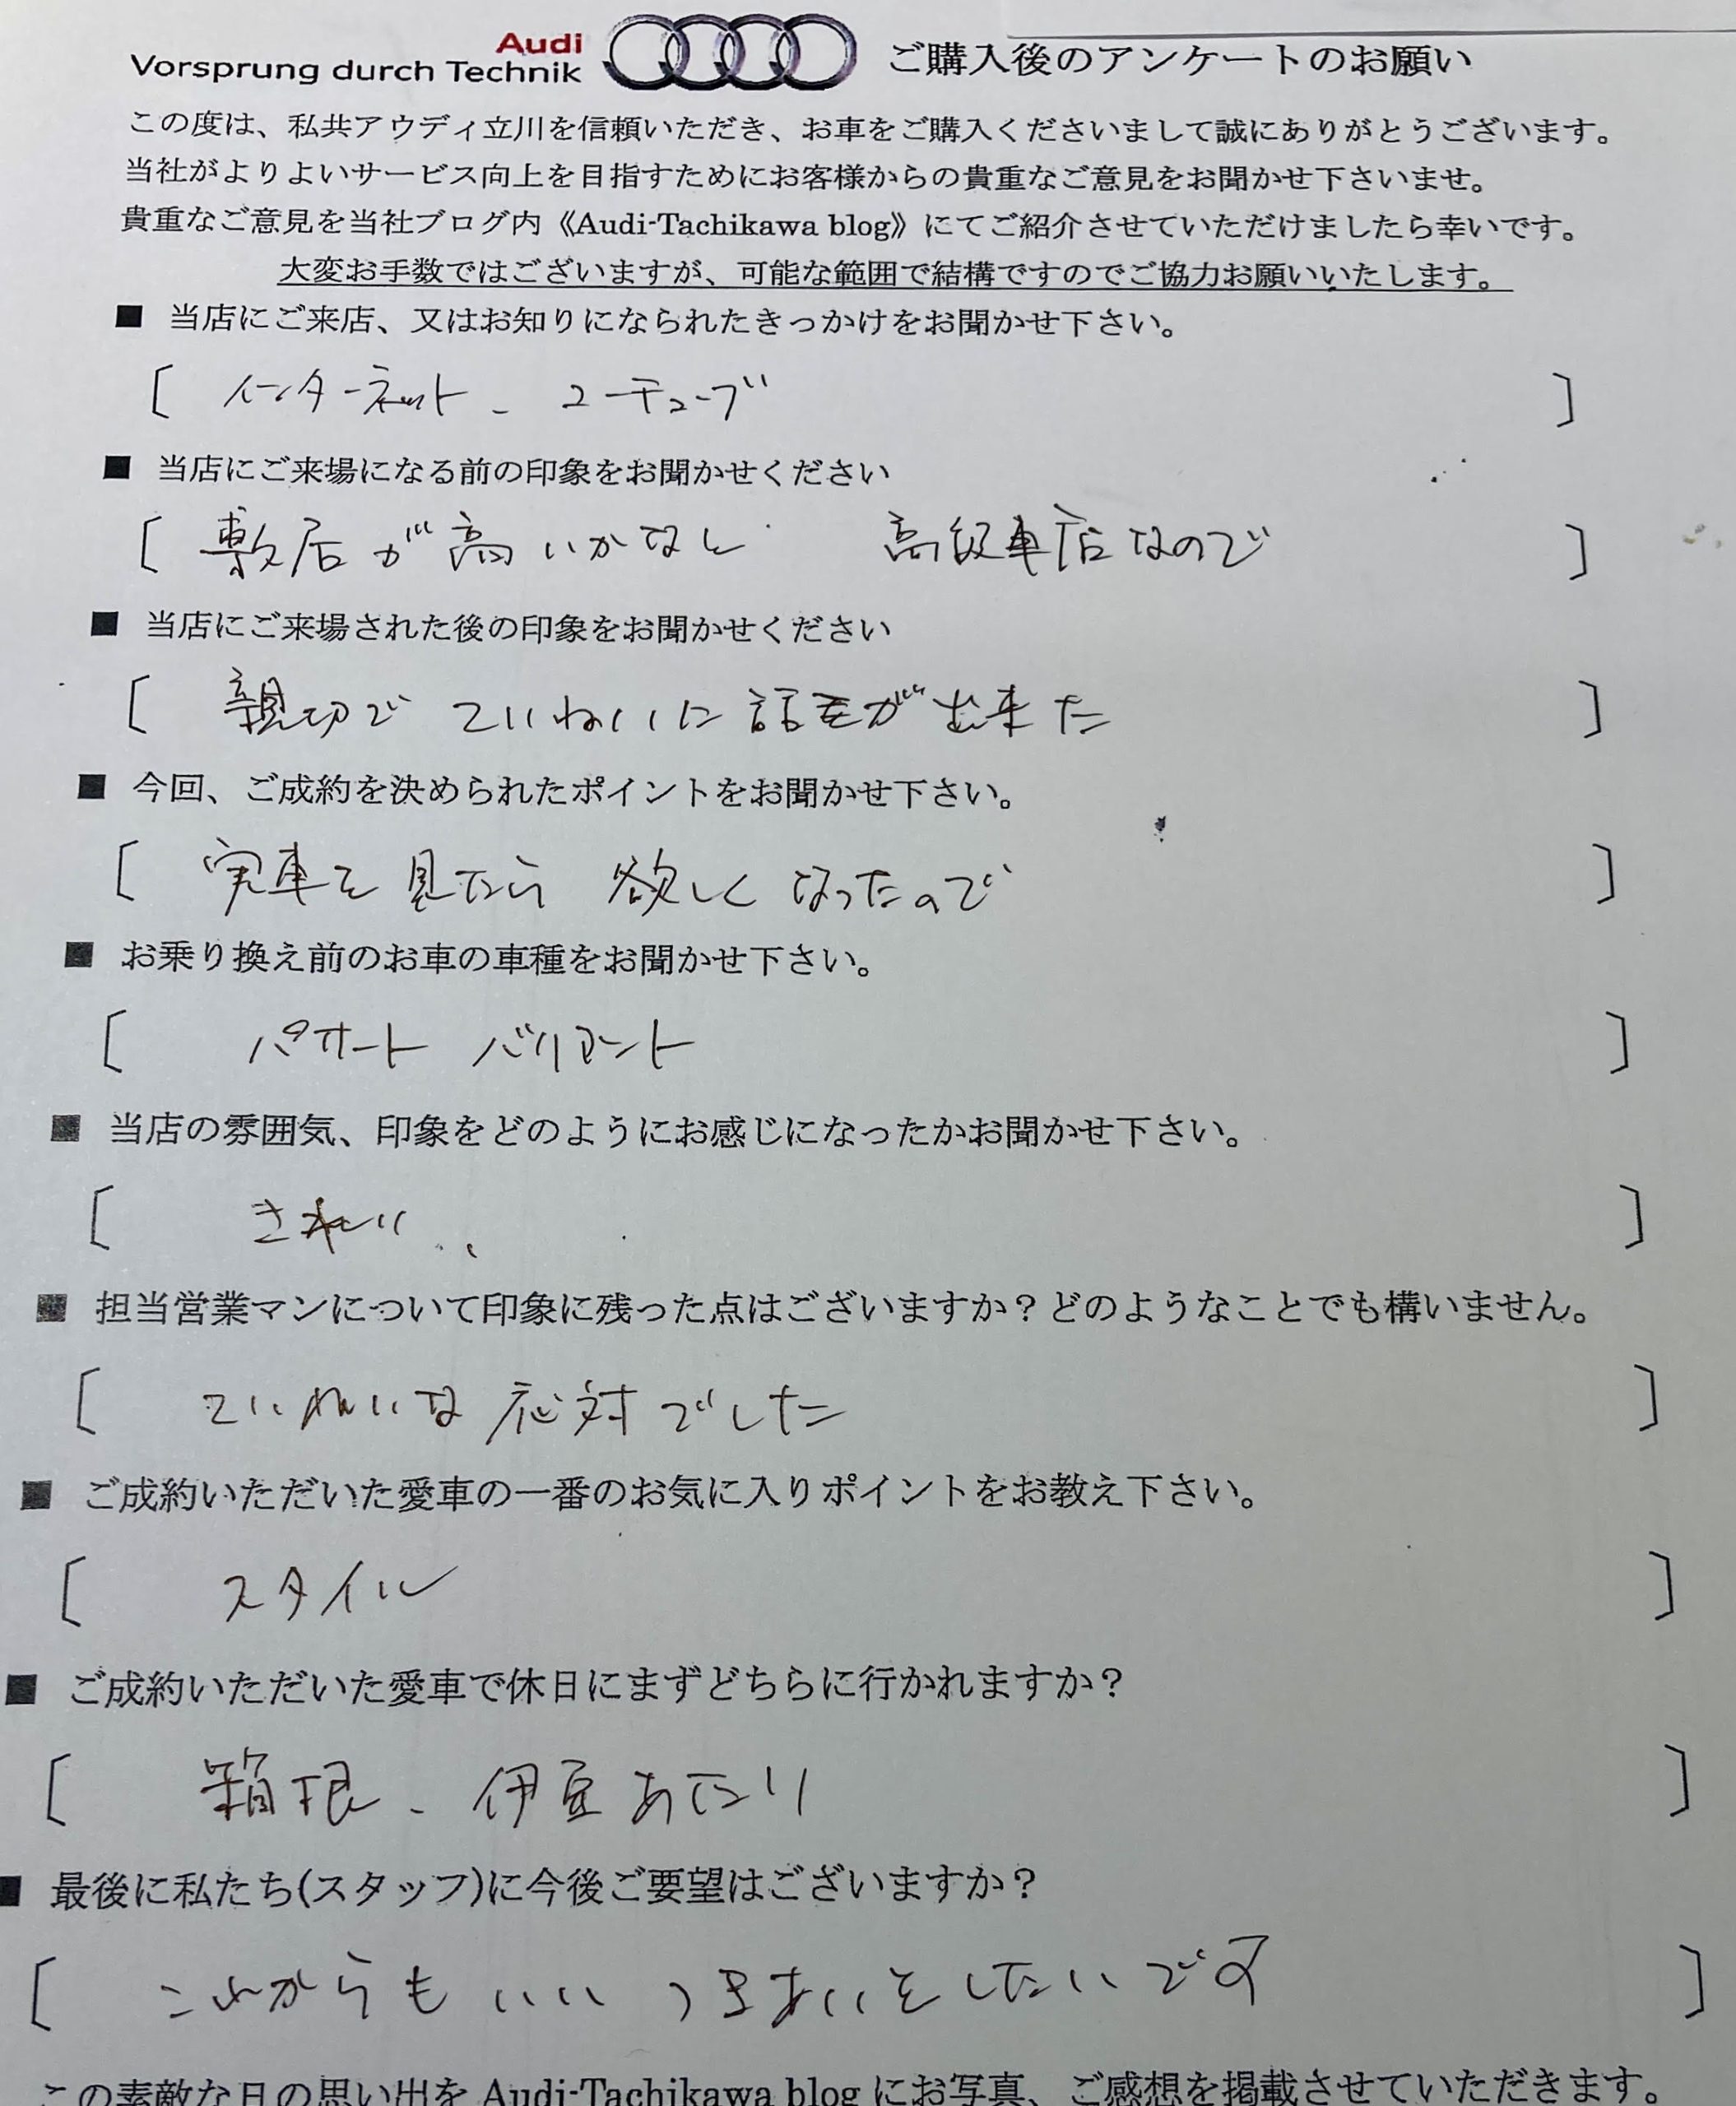 Audi
Vorsprung durch Technik
ご購入後のアンケートのお願い
この度は、私共アウディ立川を信頼いただき、お車をご購入くださいまして誠にありがとうございます。
当社がよりよいサービス向上を目指すためにお客様からの貴重なご意見をお聞かせ下さいませ。
貴重なご意見を当社ブログ内《Audi-Tachikawa blog》にてご紹介させていただけましたら幸いです。
大変お手数ではございますが、可能な範囲で結構ですのでご協力お願いいたします。
■ 当店にご来店、又はお知りになられたきっかけをお聞かせ下さい。
[ インターネット、ユーチューブ ]
■ 当店にご来場になる前の印象をお聞かせください
[ 敷居が高いかなと 高級車店なので ]
■ 当店にご来場された後の印象をお聞かせください
[ 親切で ていねいに 話が出来た ]
■ 今回、ご成約を決められたポイントをお聞かせ下さい。
[ 実車を見たら 欲しくなったので ]
■ お乗り換え前のお車の車種をお聞かせ下さい。
[ パサート バリアント ]
■ 当店の雰囲気、印象をどのようにお感じになったかお聞かせ下さい。
[ きれい ]
■ 担当営業マンについて印象に残った点はございますか？どのようなことでも構いません。
[ ていねいな 応対でした ]
■ ご成約いただいた愛車の一番のお気に入りポイントをお教え下さい。
[ スタイル ]
■ ご成約いただいた愛車で休日にまずどちらに行かれますか？
[ 箱根、伊豆あたり ]
■ 最後に私たち(スタッフ)に今後ご要望はございますか？
[ これからも いい つきあいをしたいです ]
この素敵な日の思い出を Audi-Tachikawa blog にお写真、ご感想を掲載させていただきます。